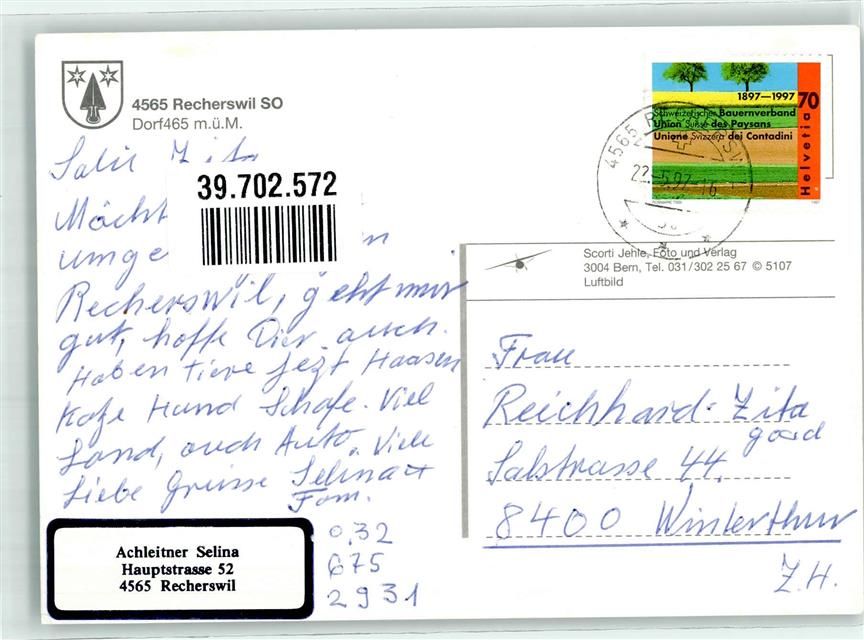 4565 Recherswil SO
Dorf465 m.ü.M.
Salü Zita
39.702.572
Möcht
umge
Recherswil, geht mir
gut, hoffe Dir auch.
Haben tiere jezt Haasen
Kaze Hund Schafe. Viel
Land, auch Auto. Viele
Liebe Grüsse Selina +
Fam.
Achleitner Selina
Hauptstrasse 52
4565 Recherswil
0.32
675
2931
1897—1997
70
Schweizerischer Bauernverband
Union Suisse des Paysans
Unione Svizzera dei Contadini
Helvetia
4565
22-5.97-16
Scorti Jehle, Foto und Verlag
3004 Bern, Tel. 031/302 25 67 © 5107
Luftbild
Frau
Reichhard-Zita
Salstrasse 44.
8400 Winterthur
Z.H.